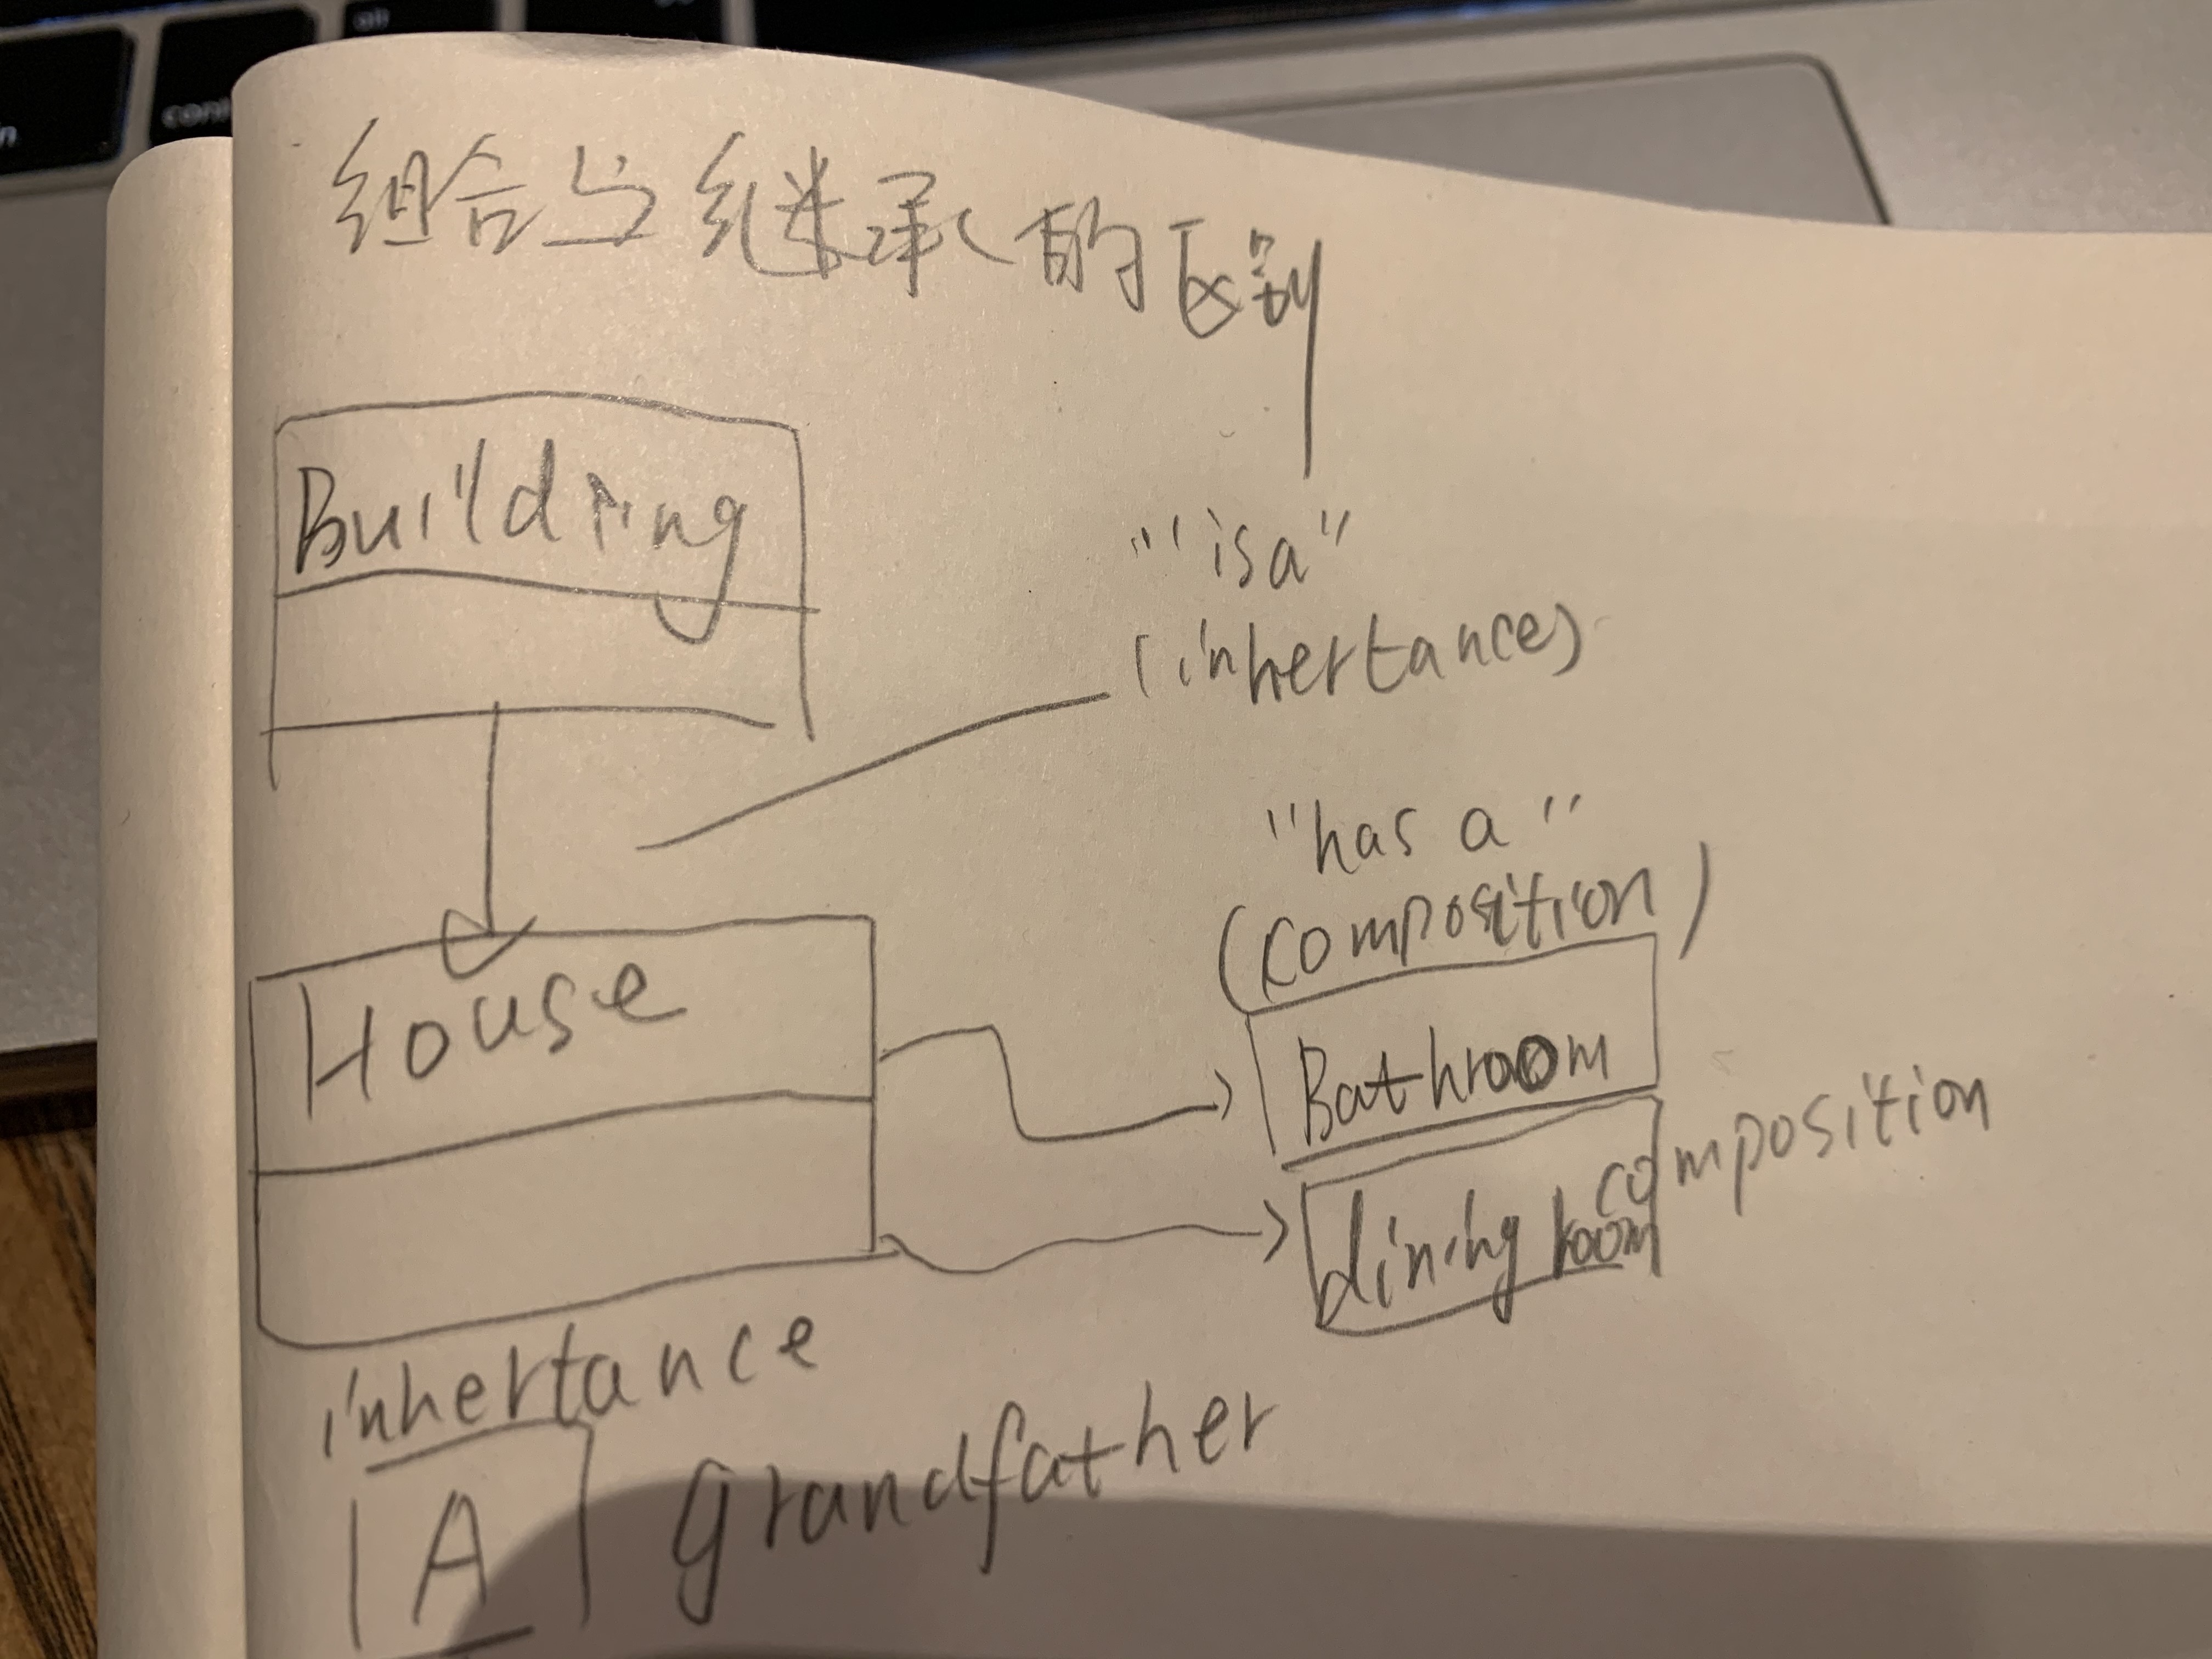 组合与继承的区别
Building
"" isa"
(inhertance)
"has a"
(composition)
House
Bathroom
composition
dining room
inhertance
A
Grandfather